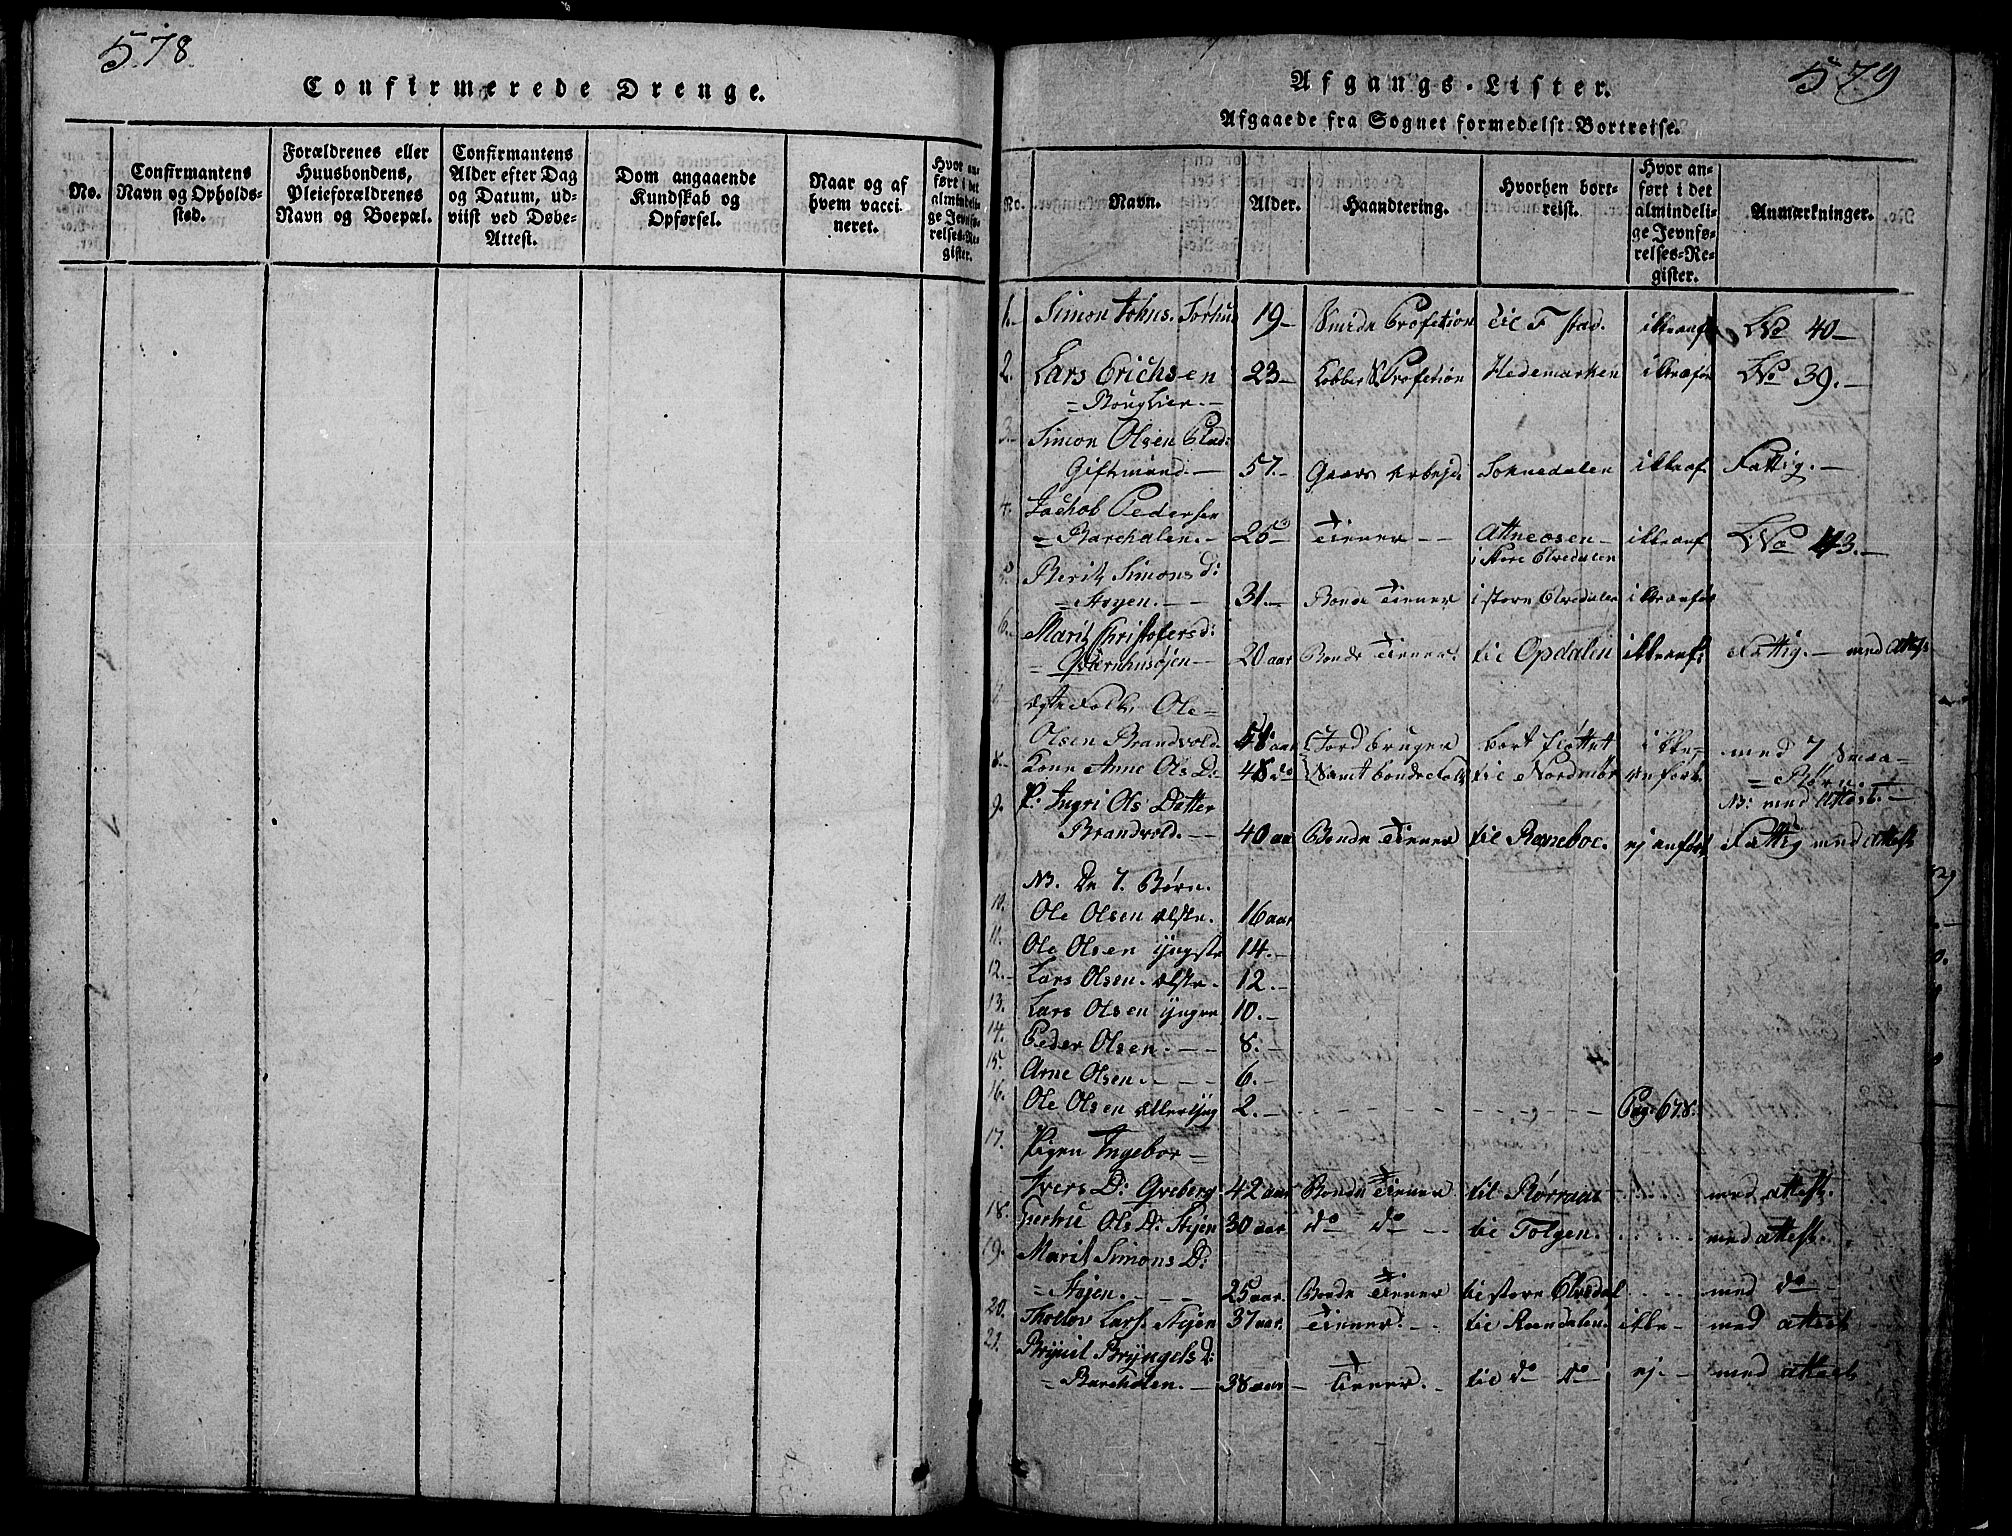 578.
Confirmerede Drenge.
No.
Confirmantens Navn og Opholds-sted.
Forældrenes eller Huusbondens, Pleieforældrenes Navn og Boepæl.
Confirmantens Alder efter Dag og Datum, ud-viist ved Døbe-Attest.
Dom angaaende Kundskab og Opførsel.
Naar og af hvem vacci-neret.
Hvor an-ført i det almindeli-ge Jevnfø-relses-Re-gister.
579
Afgangs-Lister.
Afgaaede fra Sognet formedelst Bortreise.
No.
Navn.
Alder.
Haandtering.
Hvorhen bort-reist.
Hvor an-ført i det almindeli-ge Jevnfø-relses-Re-gister.
Anmærkninger.
1. Simon Johns. 19 Profetion No 40
2. Lars Erichsen 23 Profetion Hedemarken No 39.
3. Simon Olsen
Giftmand. 57. Gaars Arbejd. Soknedalen Fattig.
4. Jachob Pedersen
Barchalen. Tienner Attneosen
i store Elvedalen
5. Berit Simons d:
Støyen. 31. Bonde Tienner i store Elvedalen
6. Marit Christofers d:
20 aar Bonde Tienner. til Opdalen Fattig. med Attest
7. Ægtefolk, Ole
Olsen Brandvold. Jordbruger bort fløttet ikke med 7 smaa
8. Kone Anne Ols D: 48 do samt bondefolk til Nordmør anført Børn
9. P: Ingri Ols Datter NB: med Attest.
Brandvold. 40 aar Bonde Tienner til ej anført Fattig med Attest
NB. De 7. Børn.
10. Ole Olsen ælste. 16 aar
11. Ole Olsen yngste 14.
12. Lars Olsen. ælste. 12.
13. Lars Olsen yngre 10.
14. Peder Olsen. 8.
15. Arne Olsen. 6.
16. Ole Olsen alleryng 2. Pag: 678.
17. Pigen Ingebor
Ivers D: 42 aar Bonde Tienner til Rørraas med attest.
18. Ols D: Støjen 30 aar do do til Tolgen. med attest.
19. Marit Simons D:
Støjen. 25 aar. Bonde Tienner til store Elvedal med do
20. Lars. Støjen 37 aar. Tienner. til Reendalen. ikke med attest
21. Bryngels D:
Barchalen. 38 aar Tienner. til do do ej. med attest